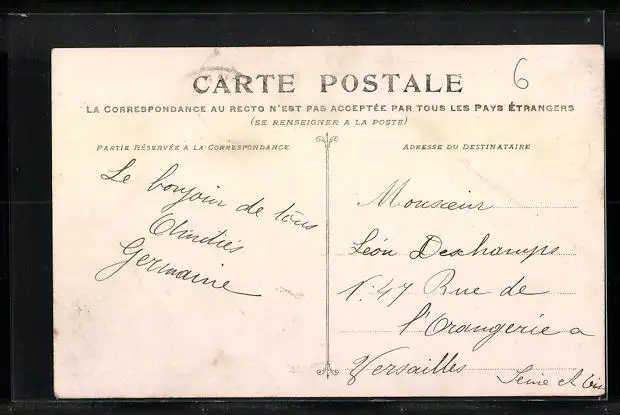 6
CARTE POSTALE
LA CORRESPONDANCE AU RECTO N'EST PAS ACCEPTÉE PAR TOUS LES PAYS ÉTRANGERS
(SE RENSEIGNER A LA POSTE)
PARTIE RÉSERVÉE A LA CORRESPONDANCE
Le bonjour de tous
Amitiés
Germaine
ADRESSE DU DESTINATAIRE
Monsieur
Léon Deschamps
N: 47 Rue de
l'Orangerie a
Versailles
Seine et Oise